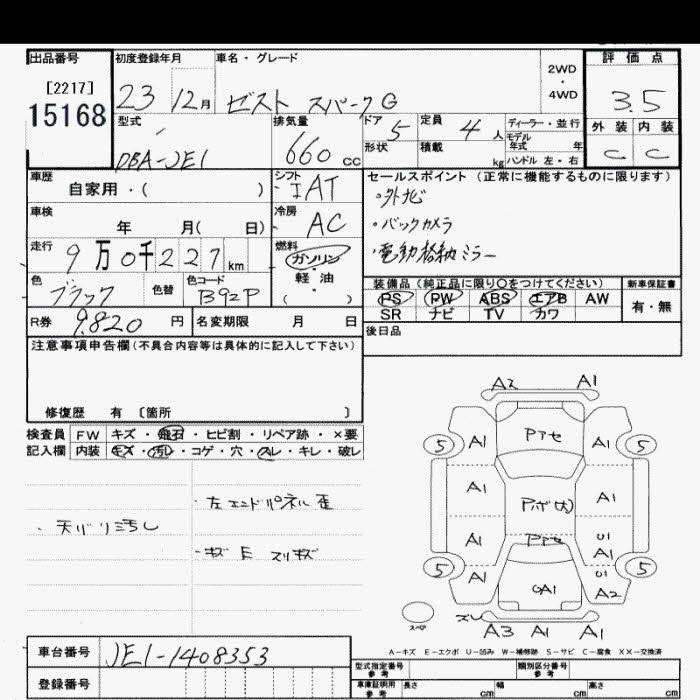 出品番号 初度登録年月 車名・グレード 2WD・4WD 評価点
[2217]
15168
23 12月 ゼスト スパークG 3.5
型式 排気量 ドア 5 定員 4人 ディーラー・並行 外装 内装
DBA-JE1 660cc 形状 積載 kg モデル年式 年 C C
ハンドル 左・右
車歴 シフト セールスポイント (正常に機能するものに限ります)
自家用・( ) IAT ・外ナビ
車検 冷房 ・バックカメラ
年 月( 日) AC ・電動格納ミラー
走行 9万0千227km 燃料 ガソリン 軽・油 ( )
色 色替 色コード 装備品(純正品に限り○をつけてください) 新車保証書
ブラック B92P PS PW ABS エアB AW 有・無
SR ナビ TV カワ
R券 9,820円 名変期限 月 日 後日品
注意事項申告欄(不具合内容等は具体的に記入して下さい)
修復歴 有 〔箇所 〕
検査員 FW キズ・飛石・ヒビ割・リペア跡・×要
記入欄 内装 キズ・汚レ・コゲ・穴・スレ・キレ・破レ
・左エンドパネル歪
・天バリ汚レ
・キズ E スリキズ
A2 A1
5 A1 Pアセ A1 5
A1 Pボ(大) A1
A1 Pアセ U1 A1
5 A1 GA1 U1 A2 5
スペア ズレ A3 A1 A1
A-キズ E-エクボ U-凹み W-補修跡 S-サビ C-腐食 XX-交換済
車台番号 JE1-1408353
登録番号
型式指定番号 参考 類別区分番号 参考
車庫証明用 参考 長さ cm 幅 cm 高さ cm